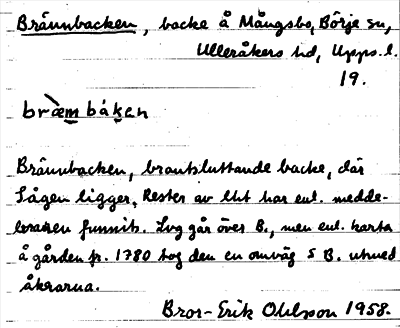 Brännbacken, backe å Mångsbo, Börje sn,
Ulleråkers hd, Upps. l.
19.
bræ̀m báken
Brännbacken, brantsluttande backe, där
Sågen ligger. Rester av lht har enl. medde-
laren funnits. Lvg går över B., men enl. karta
å gården fr. 1780 tog den en omväg S B. utmed
åkrarna.
Bror-Erik Ohlsson 1958.